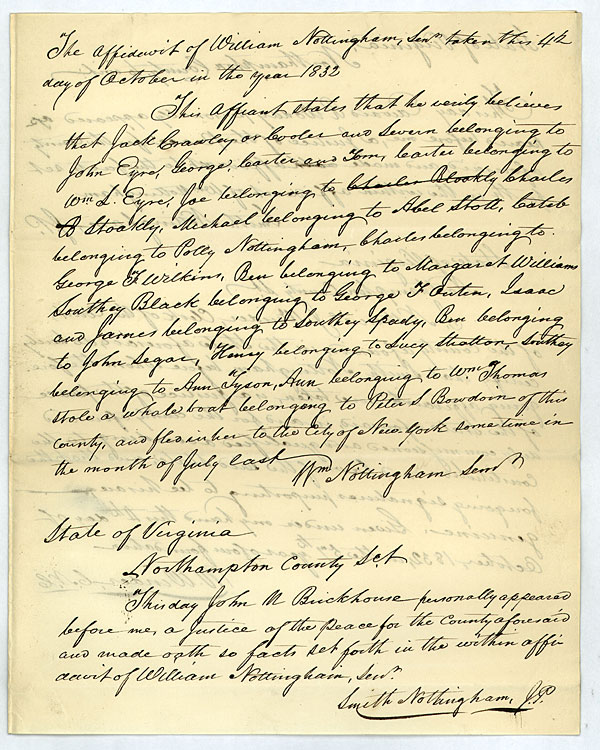 The Affidavit of William Nottingham, Senr taken this 4th
day of October in the year 1832
This Affiant states that he verily believes
that Jack Crawley or Cooler and Severn belonging to
John Eyre, George, Carter and Tom, Carter belonging to
Wm L. Eyre, Joe belonging to Charles Stoakly Charles
B Stoakly, Michael belonging to Abel Stott, Caleb
belonging to Polly Nottingham, Charles belonging to
George F Wilkins, Ben belonging to Margaret Williams
Southey Black belonging to George F Outen, Isaac
and James belonging to Southey Spady, Ben belonging
to John Segar, Henry belonging to Lucy Stratton, Southey
belonging to Ann Tyson, Ann belonging to Wm Thomas
stole a whale boat belongeng to Peter S Bowdoin of this
County, and fled in her to the City of New York some time in
the month of July last
Wm Nottingham Senr
State of Virginia
Northampton County Sct
This day John N Brickhouse personally appeared
before me, a Justice of the Peace for the County aforesaid
and made oath so facts set forth in the within affi
davit of William Nottingham, Senr.
Smith Nottingham, J.P.